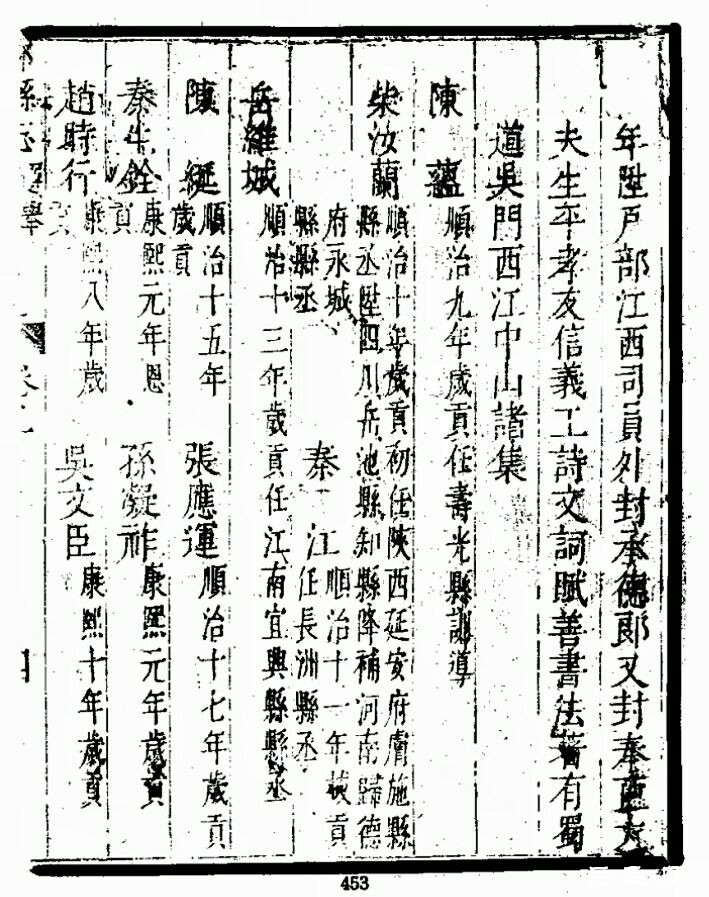 年陞戶部江西司員外封承德郎又封奉直大
夫生平孝友信義工詩文詞賦善書法著有蜀
道吳門西江中山諸集
陳蘊 順治九年歲貢任壽光縣訓導
柴汝蘭 順治十年歲貢初任陝西延安府膚施縣
縣丞陞四川岳池縣知縣降補河南歸德
府永城
縣縣丞
秦江 順治十一年拔貢
任長洲縣丞
岳維城 順治十三年歲貢任江南宜興縣縣丞
陳綖 順治十五年
歲貢
張應運 順治十七年歲貢
秦生銓 康熙元年恩
貢
孫凝祚 康熙元年歲貢
趙時行 康熙八年歲
貢
吳文臣 康熙十年歲貢
縣志
453